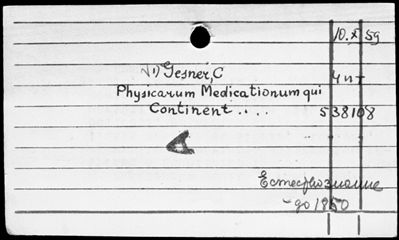 10.X 59
√1) Gesner, C
чит
Physicarum Medicationum qui
Continent ....
538108
Естествознание
- до 1850